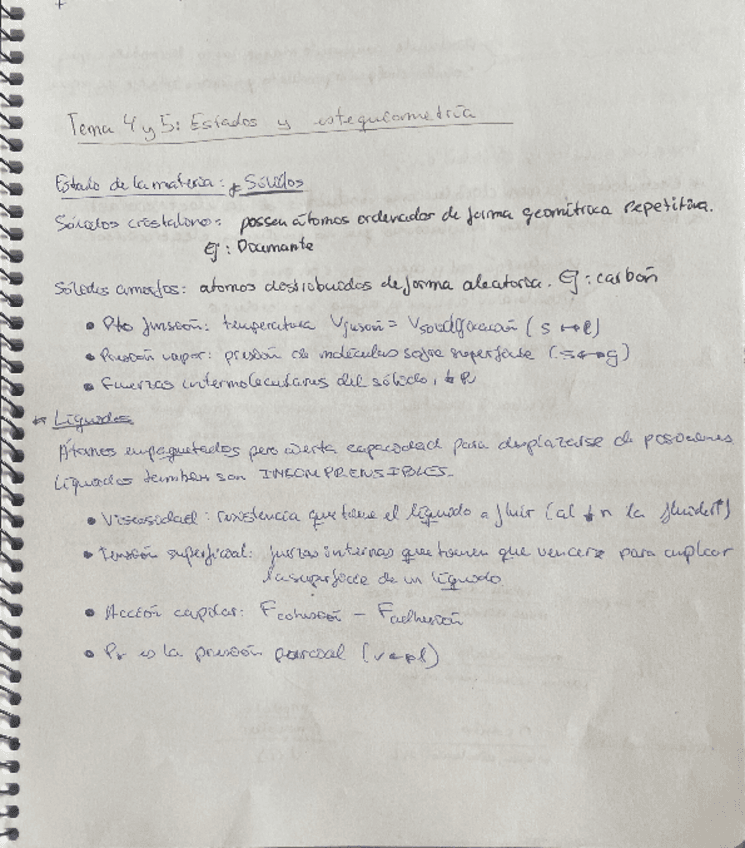 Tema 4 y 5: Estados y estequiometría
Estado de la materia: * Sólidos
Sólidos cristalinos: poseen átomos ordenados de forma geométrica repetitiva.
Ej: Diamante
Sólidos amorfos: átomos distribuidos de forma aleatoria. Ej: carbón
• Pto fusión: temperatura Vfusión = Vsolidificación (s ↔ l)
• Presión vapor: presión de moléculas sobre superficie (s ↔ g)
• Fuerzas intermoleculares del sólido,
* Líquidos
Átomos empaquetados pero cierta capacidad para desplazarse de posiciones
Líquidos también son INCOMPRENSIBLES.
• Viscosidad: resistencia que tiene el líquido a fluir (al la fluidez ↑)
• Tensión superficial: fuerzas internas que tienen que vencerse para ampliar
la superficie de un líquido
• Acción capilar: Fcohesión – Fadhesión
• Pv es la presión parcial